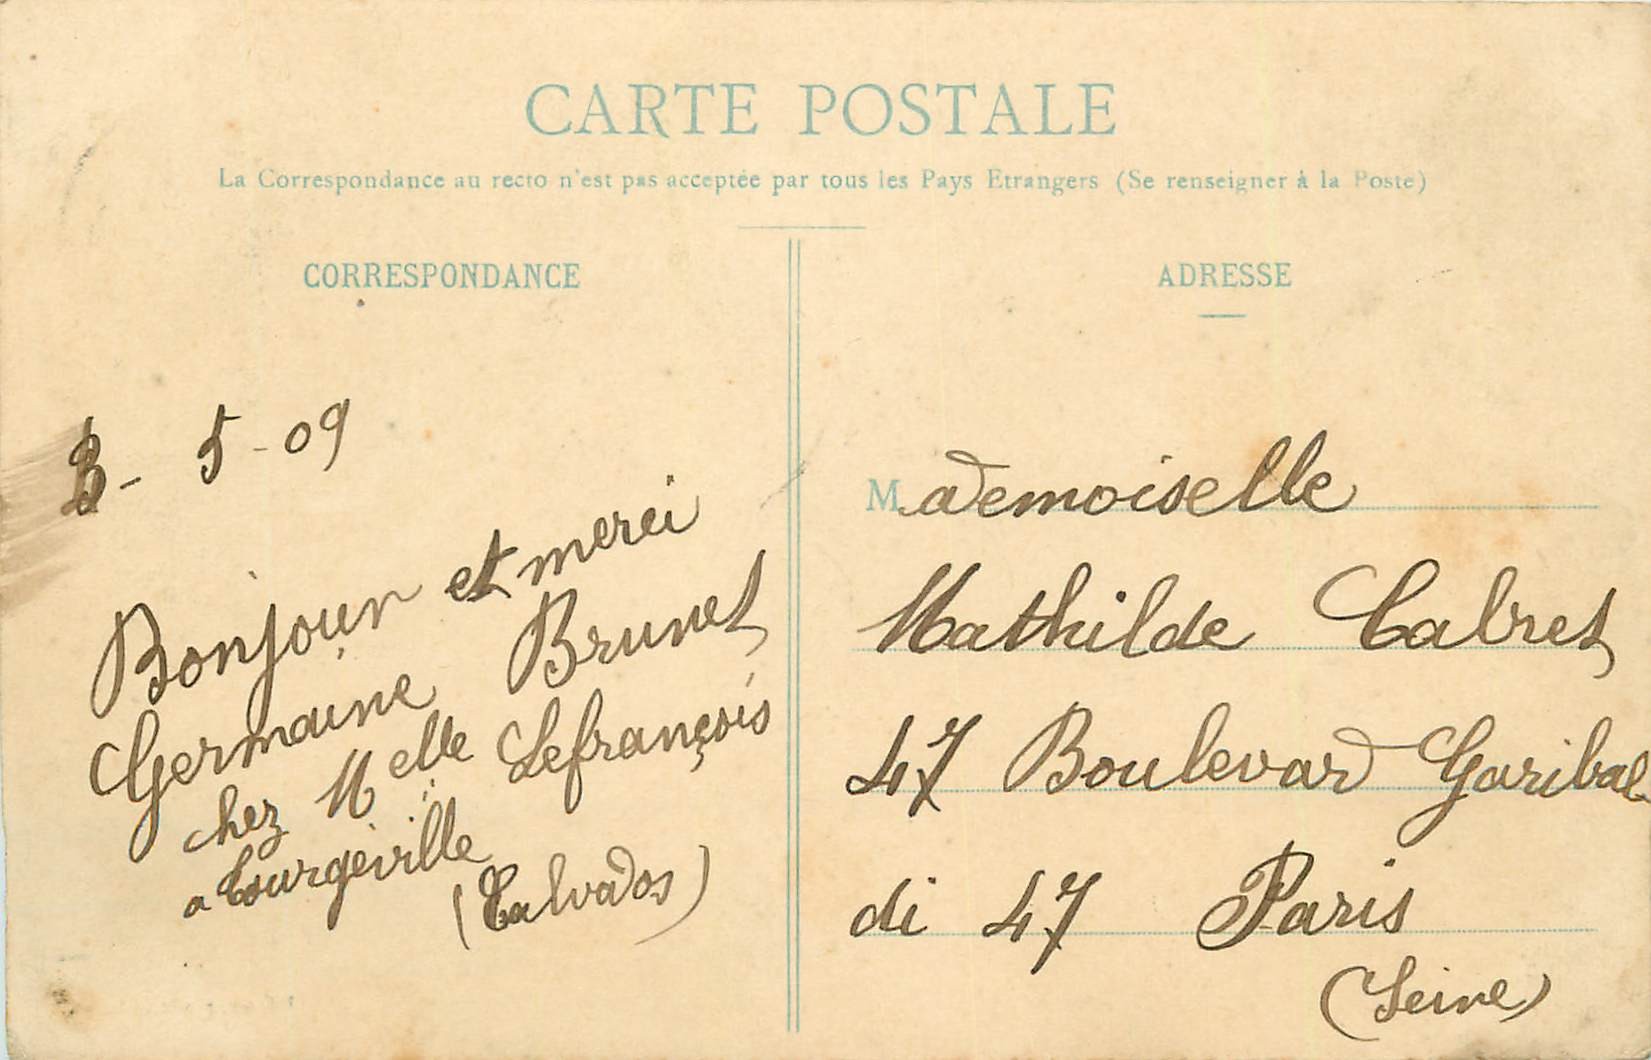 CARTE POSTALE
La Correspondance au recto n'est pas acceptée par tous les Pays Etrangers (Se renseigner à la Poste)
CORRESPONDANCE
3 - 5 - 09
Bonjour et merci
Germaine Brunet
chez Melle Lefrançois
a Tourgéville
(Calvados)
ADRESSE
Mademoiselle
Mathilde Cabret
47 Boulevard Garibal-
di 47 Paris
(Seine)